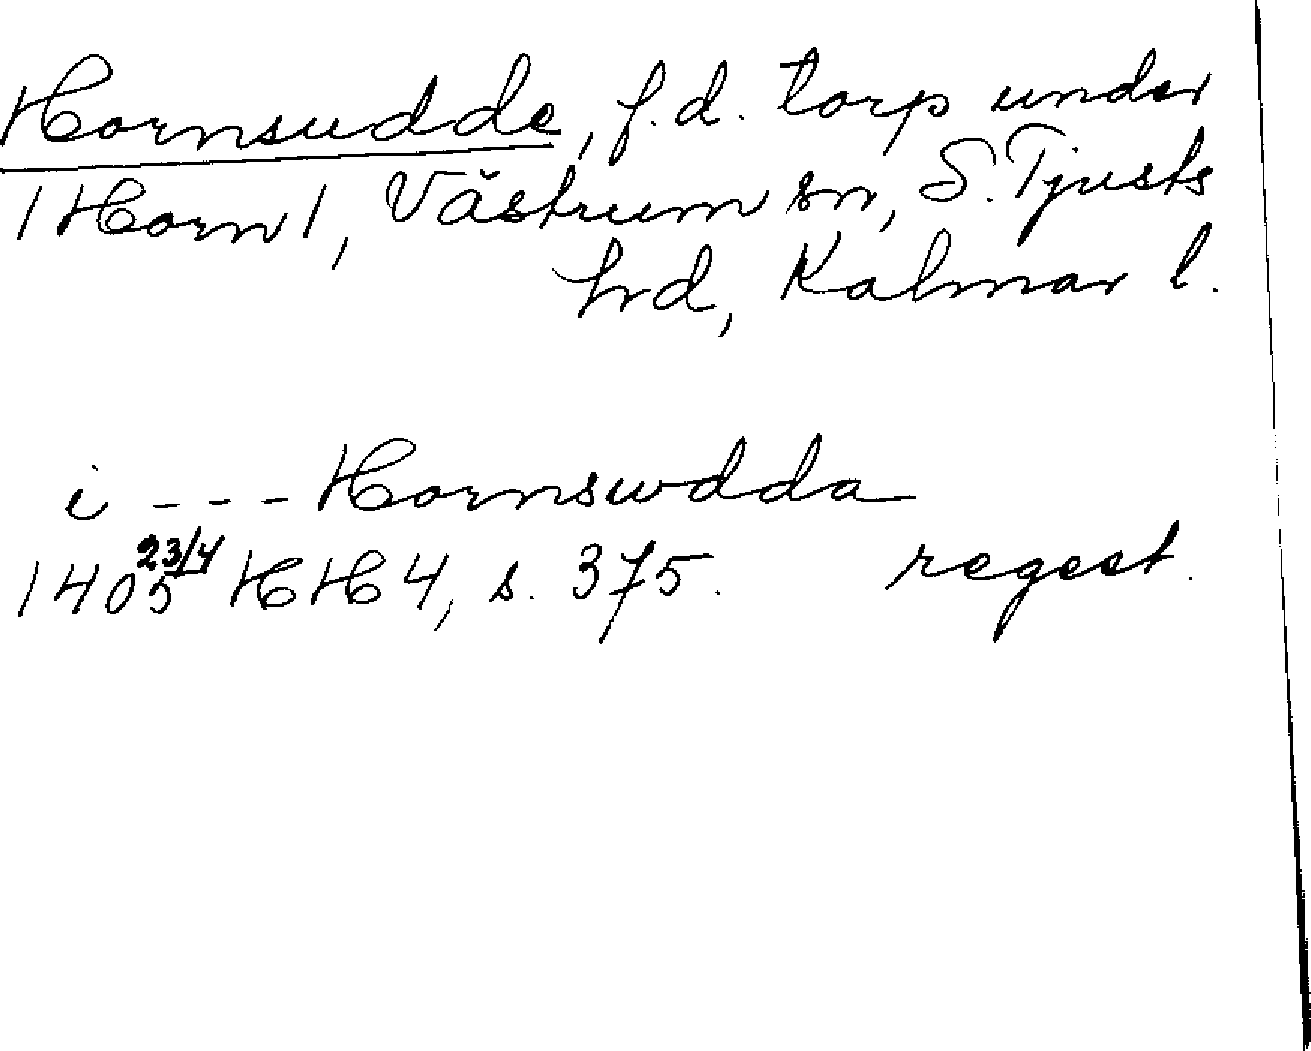 Hornsudde, f.d. torp under
/Horn/, Västrum sn, S. Tjusts
hrd, Kalmar l.
i --- Hornswdda
1405 23/4 HH 4, s. 375. regest.